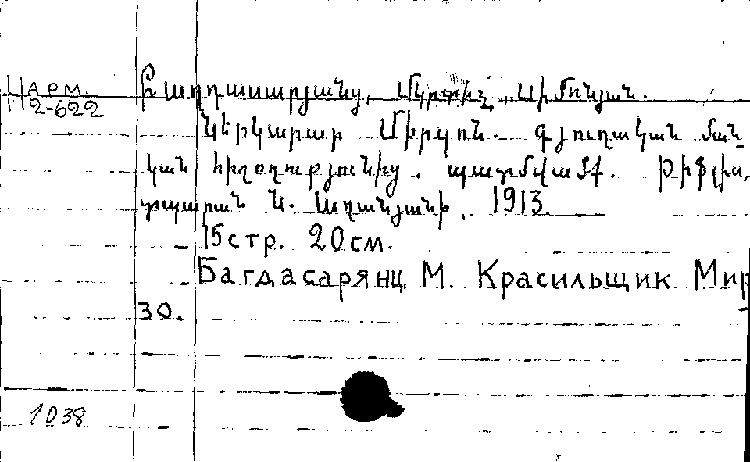 Арм.
2-622
Բաղդասարյանց, Մկրտիչ Սիմոնյան.
Ներկարար Միրզոն. գյուղական ման-
կան հիշողությունից. պատմվածք. Թիֆլիս,
տպարան Ն. Աղանյանի, 1913
15 стр. 20 см.
Багдасарянц М. Красильщик Мир
зо.
1038